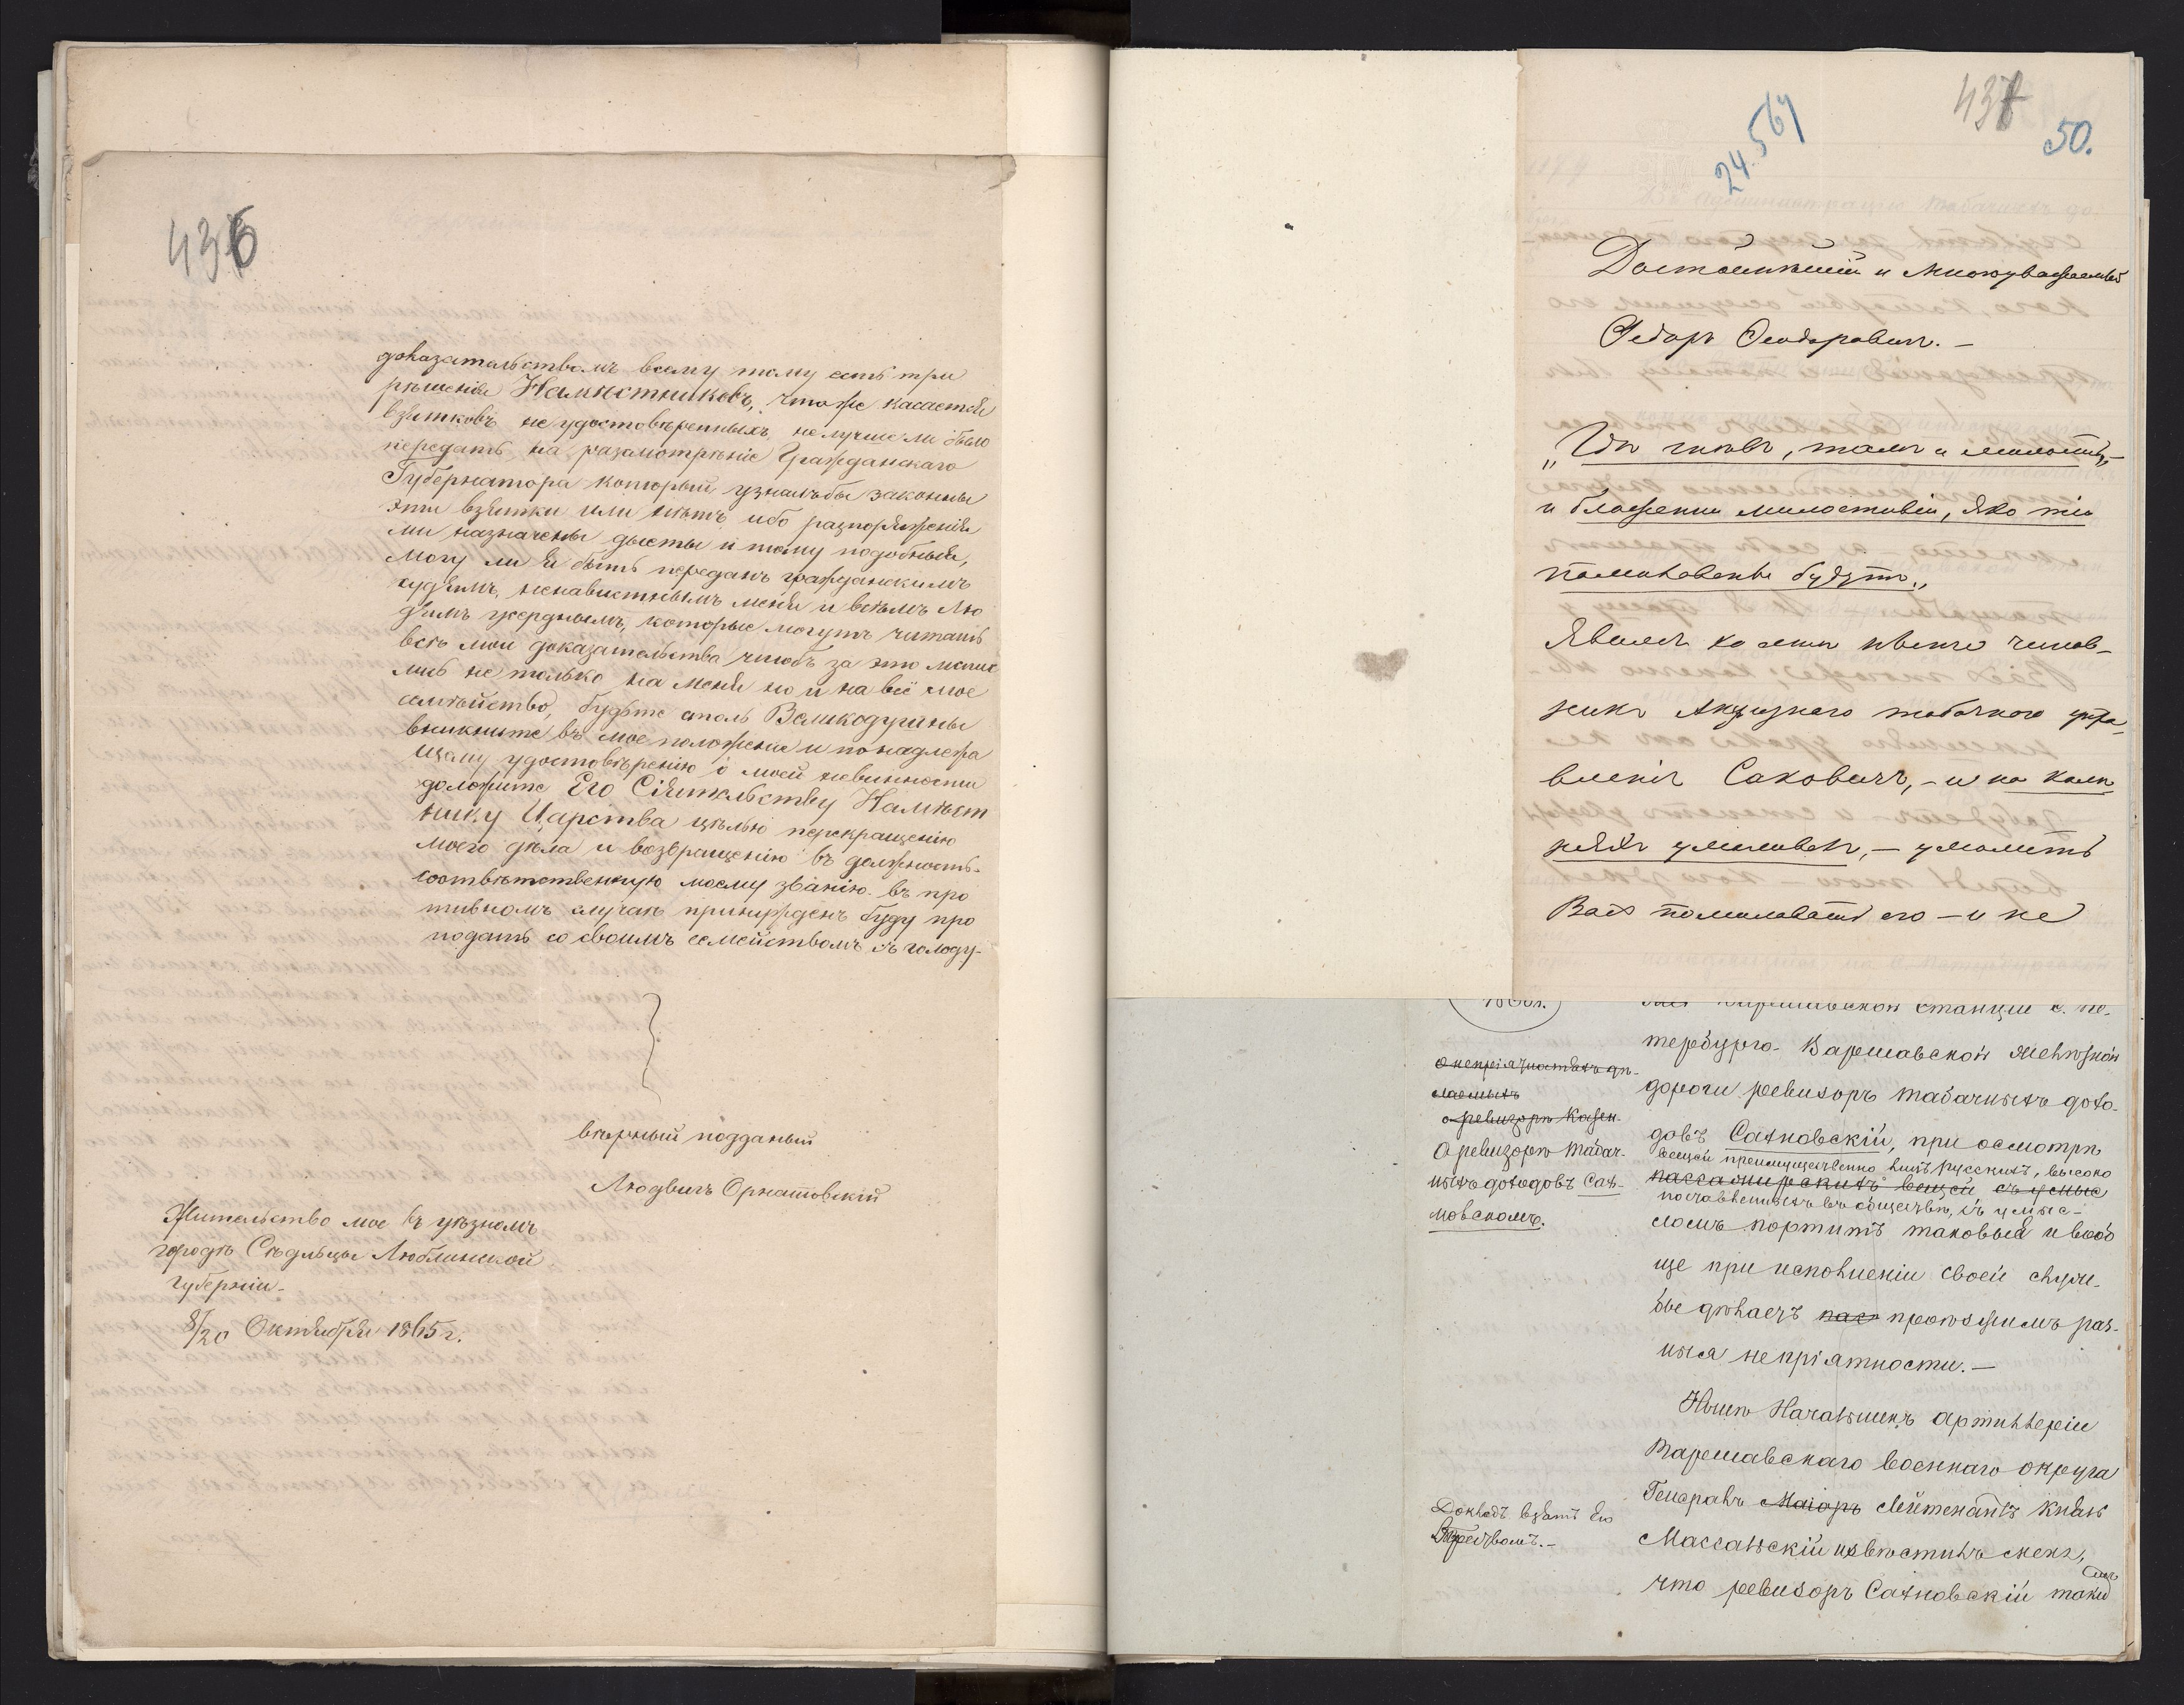 436
доказательствомъ всему тому есть три
рѣшенія Намѣстниковъ, чтоже касается
взятковъ не удостовѣренныхъ, не лучше ли было
передать на разсмотрѣніе Гражданскаго
Губернатора который узналъбы законны
эти взятки или нѣтъ ибо разпоряженія
ми назначены діеты и тому подобныя,
могу ли я быть переданъ гражданскимъ
судямъ, ненавистнымъ меня и всѣмъ лю
дямъ усерднымъ, которые могутъ читать
всѣ мои доказательства чтобъ за это мстит
лись не только на меня но и на всё мое
семѣйство, будьте столь Великодушны
вникните въ мое положеніе и по надлежа
щему удостовѣренію о моей невинности
доложите Его Сіятельству Намѣст
нику Царства цѣлью перекращенію
моего дѣла и возвращенію въ должность
соотвѣтственную моему званію въ про
тивномъ случаѣ принужденъ буду про
подать со своимъ семействомъ съ голоду-
вѣрный подданый
Людвигъ Орнатовскій
Жительство мое въ уѣзномъ
городѣ Сѣдльцы Люблинской
губерніи-
8/20 Октября 1865 г.
437
50.
24.564
Достойнѣйшій и Многоуважаемый
Ѳедоръ Ѳеодоровичъ. –
„Гдѣ гнѣвъ, тамъ и милость„ –
и блаженны милостивіи, яко тіи
помиловены будутъ„
Явился ко мнѣ нѣкто чинов-
никъ Акцизнаго табачнаго упра-
вленія Саковичъ, – и на колѣ
няхъ умилялъ, – умолить
Васъ помиловать его – и не
186 г.
Варшавской станціи С. Пе-
тербурго- Варшавской желѣзной
дороги ревизоръ табачныхъ дохо-
довъ Сахновскій, при осмотрѣ
вещей преимущественно лицъ русскихъ, высоко
пассажирскихъ вещей, съ умыс
поставленныхъ въ обществѣ, съ умыс-
ломъ портитъ таковыя и вооб
ще при исполненіи своей служ-
бы дѣлаетъ пас проѣзжимъ раз-
ныя непріятности. –
Нынѣ Начальникъ артиллеріи
Варшавскаго военнаго округа
Генералъ Маіоръ Лейтенантъ князь
Массальскій извѣстилъ меня,
что ревизоръ Сахновскій такимъ
О непріятностяхъ дѣ-
лаемыхъ
ревизоромъ Казен-
О ревизорѣ табач-
ныхъ доходовъ Сах-
новскомъ.
Докладъ взятъ Его